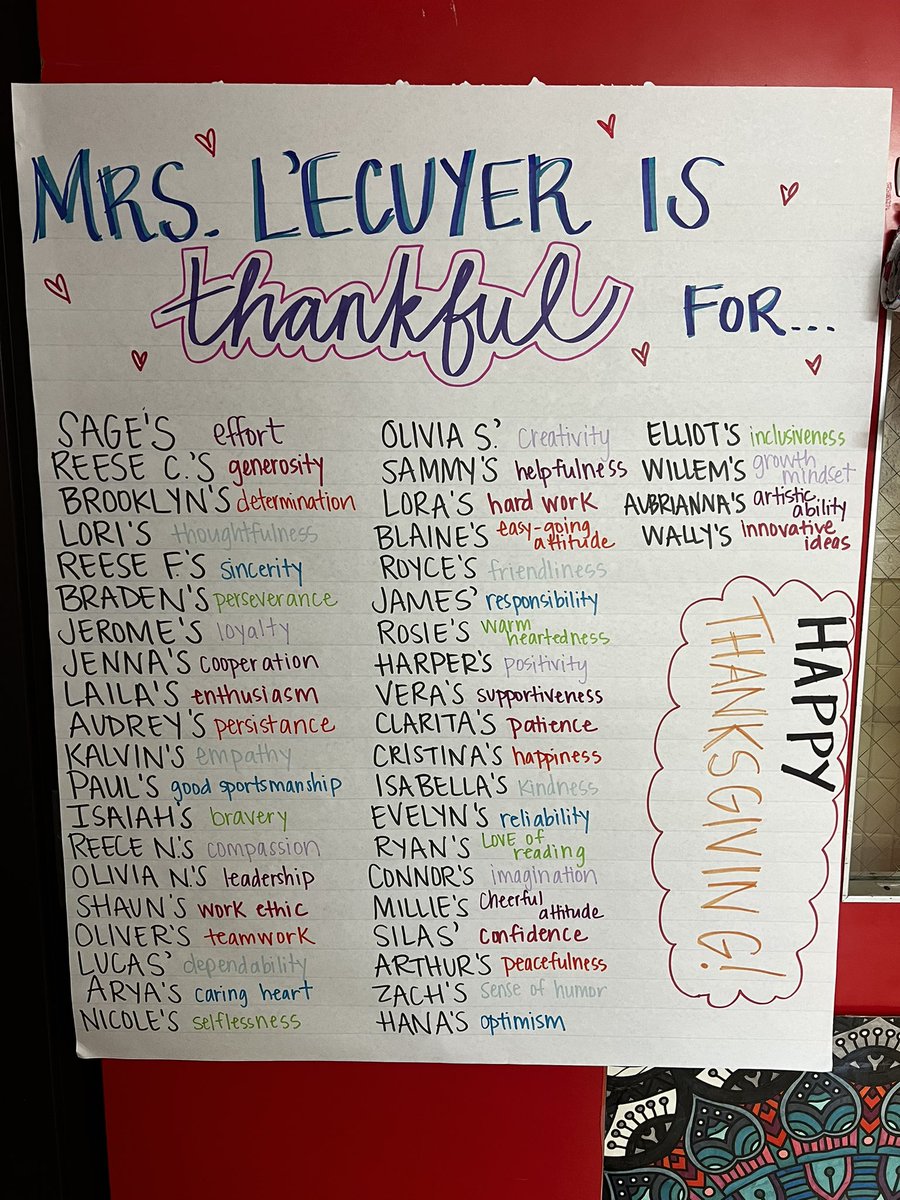 MRS. L'ECUYER IS
thankful FOR...
SAGE'S effort
REESE C.'S generosity
BROOKLYN'S determination
LORI'S thoughtfulness
REESE F.'S sincerity
BRADEN'S perseverance
JEROME'S loyalty
JENNA'S cooperation
LAILA'S enthusiasm
AUDREY'S persistance
KALVIN'S empathy
PAUL'S good sportsmanship
ISAIAH'S bravery
REECE N.'S compassion
OLIVIA N.'S leadership
SHAUN'S work ethic
OLIVER'S teamwork
LUCAS' dependability
ARYA'S caring heart
NICOLE'S selflessness
OLIVIA S.' Creativity
SAMMY'S helpfulness
LORA'S hard work
BLAINE'S easy-going
attitude
ROYCE'S friendliness
JAMES' responsibility
ROSIE'S warm
heartedness
HARPER'S positivity
VERA'S supportiveness
CLARITA'S patience
CRISTINA'S happiness
ISABELLA'S kindness
EVELYN'S reliability
RYAN'S LOVE OF
reading
CONNOR'S imagination
MILLIE'S Cheerful
attitude
SILAS' confidence
ARTHUR'S peacefulness
ZACH'S sense of humor
HANA'S optimism
ELLIOT'S inclusiveness
WILLEM'S growth
mindset
AUBRIANNA'S artistic
ability
WALLY'S innovative
ideas
HAPPY
THANKSGIVING!